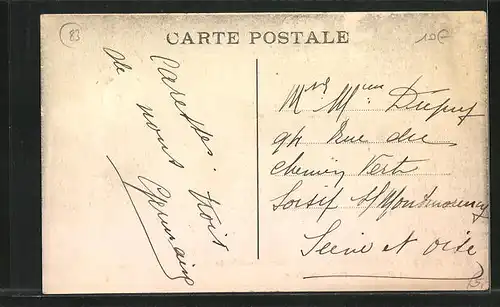 83
CARTE POSTALE
10€
Caresses
de nous trois
Germaine
Mr Mme Dupuy
94 Rue du
Chemin Vert
Soisif s/Montmorency
Seine et Oise